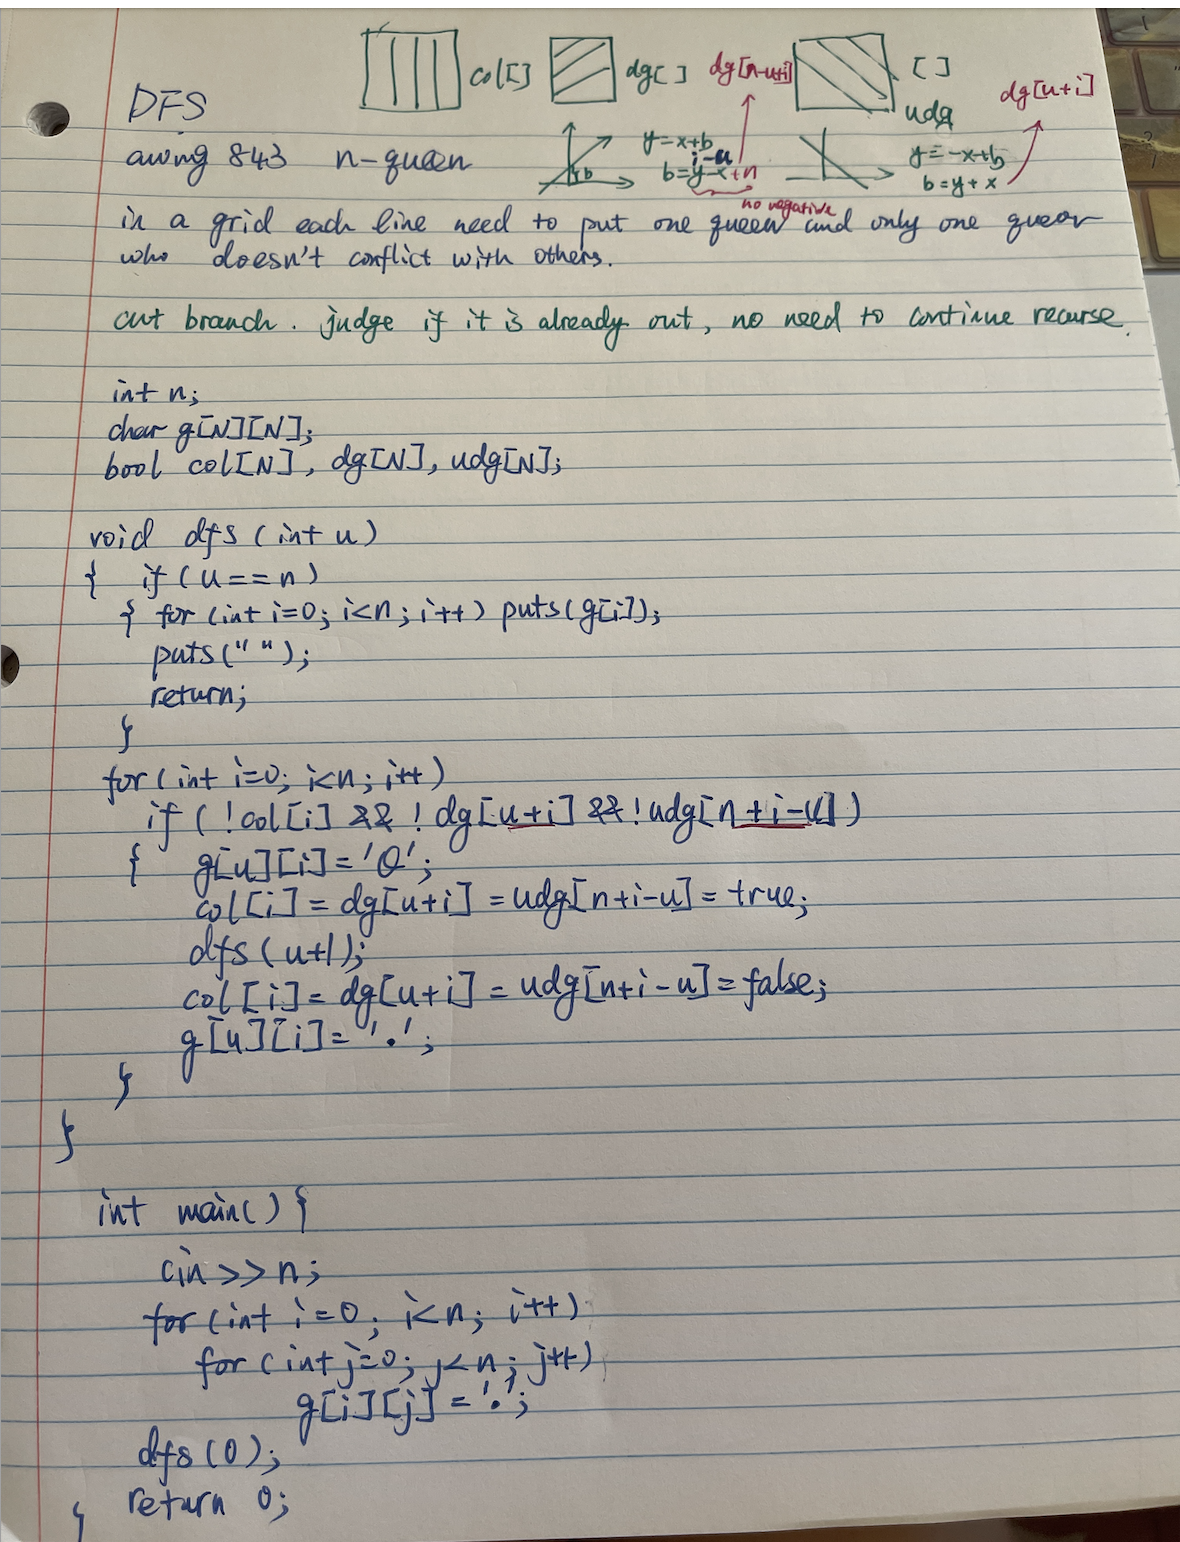 col[] dg[ ] dg[n-u+i] [ ] dg[u+i]
udg
DFS
y=x+b
i-u
acwing 843 n-queen
b=y-x+n
y=-x+b
b=y+x
b
no negative
in a grid each line need to put one queen and only one queen
who doesn't conflict with others.
cut branch. judge if it is already out, no need to continue recurse.
int n;
char g[N][N];
bool col[N], dg[N], udg[N];
void dfs (int u)
{ if (u==n)
{ for (int i=0; i<n; i++) puts(g[i]);
puts(" ");
return;
}
for (int i=0; i<n; i++)
if (!col[i] && !dg[u+i] && !udg[n+i-u])
{ g[u][i]='Q';
col[i] = dg[u+i] = udg[n+i-u] = true;
dfs(u+1);
col[i] = dg[u+i] = udg[n+i-u] = false;
g[u][i]='.';
}
}
int main() {
cin >> n;
for (int i=0; i<n; i++)
for (int j=0; j<n; j++)
g[i][j] = '.';
dfs(0);
return 0;
}